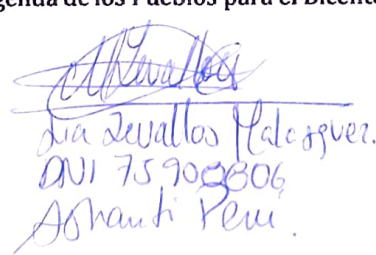 genda de los Pueblos para el Bicente
Lia Zevallos Malasquez.
DNI 75908806
Ashanti Perú.